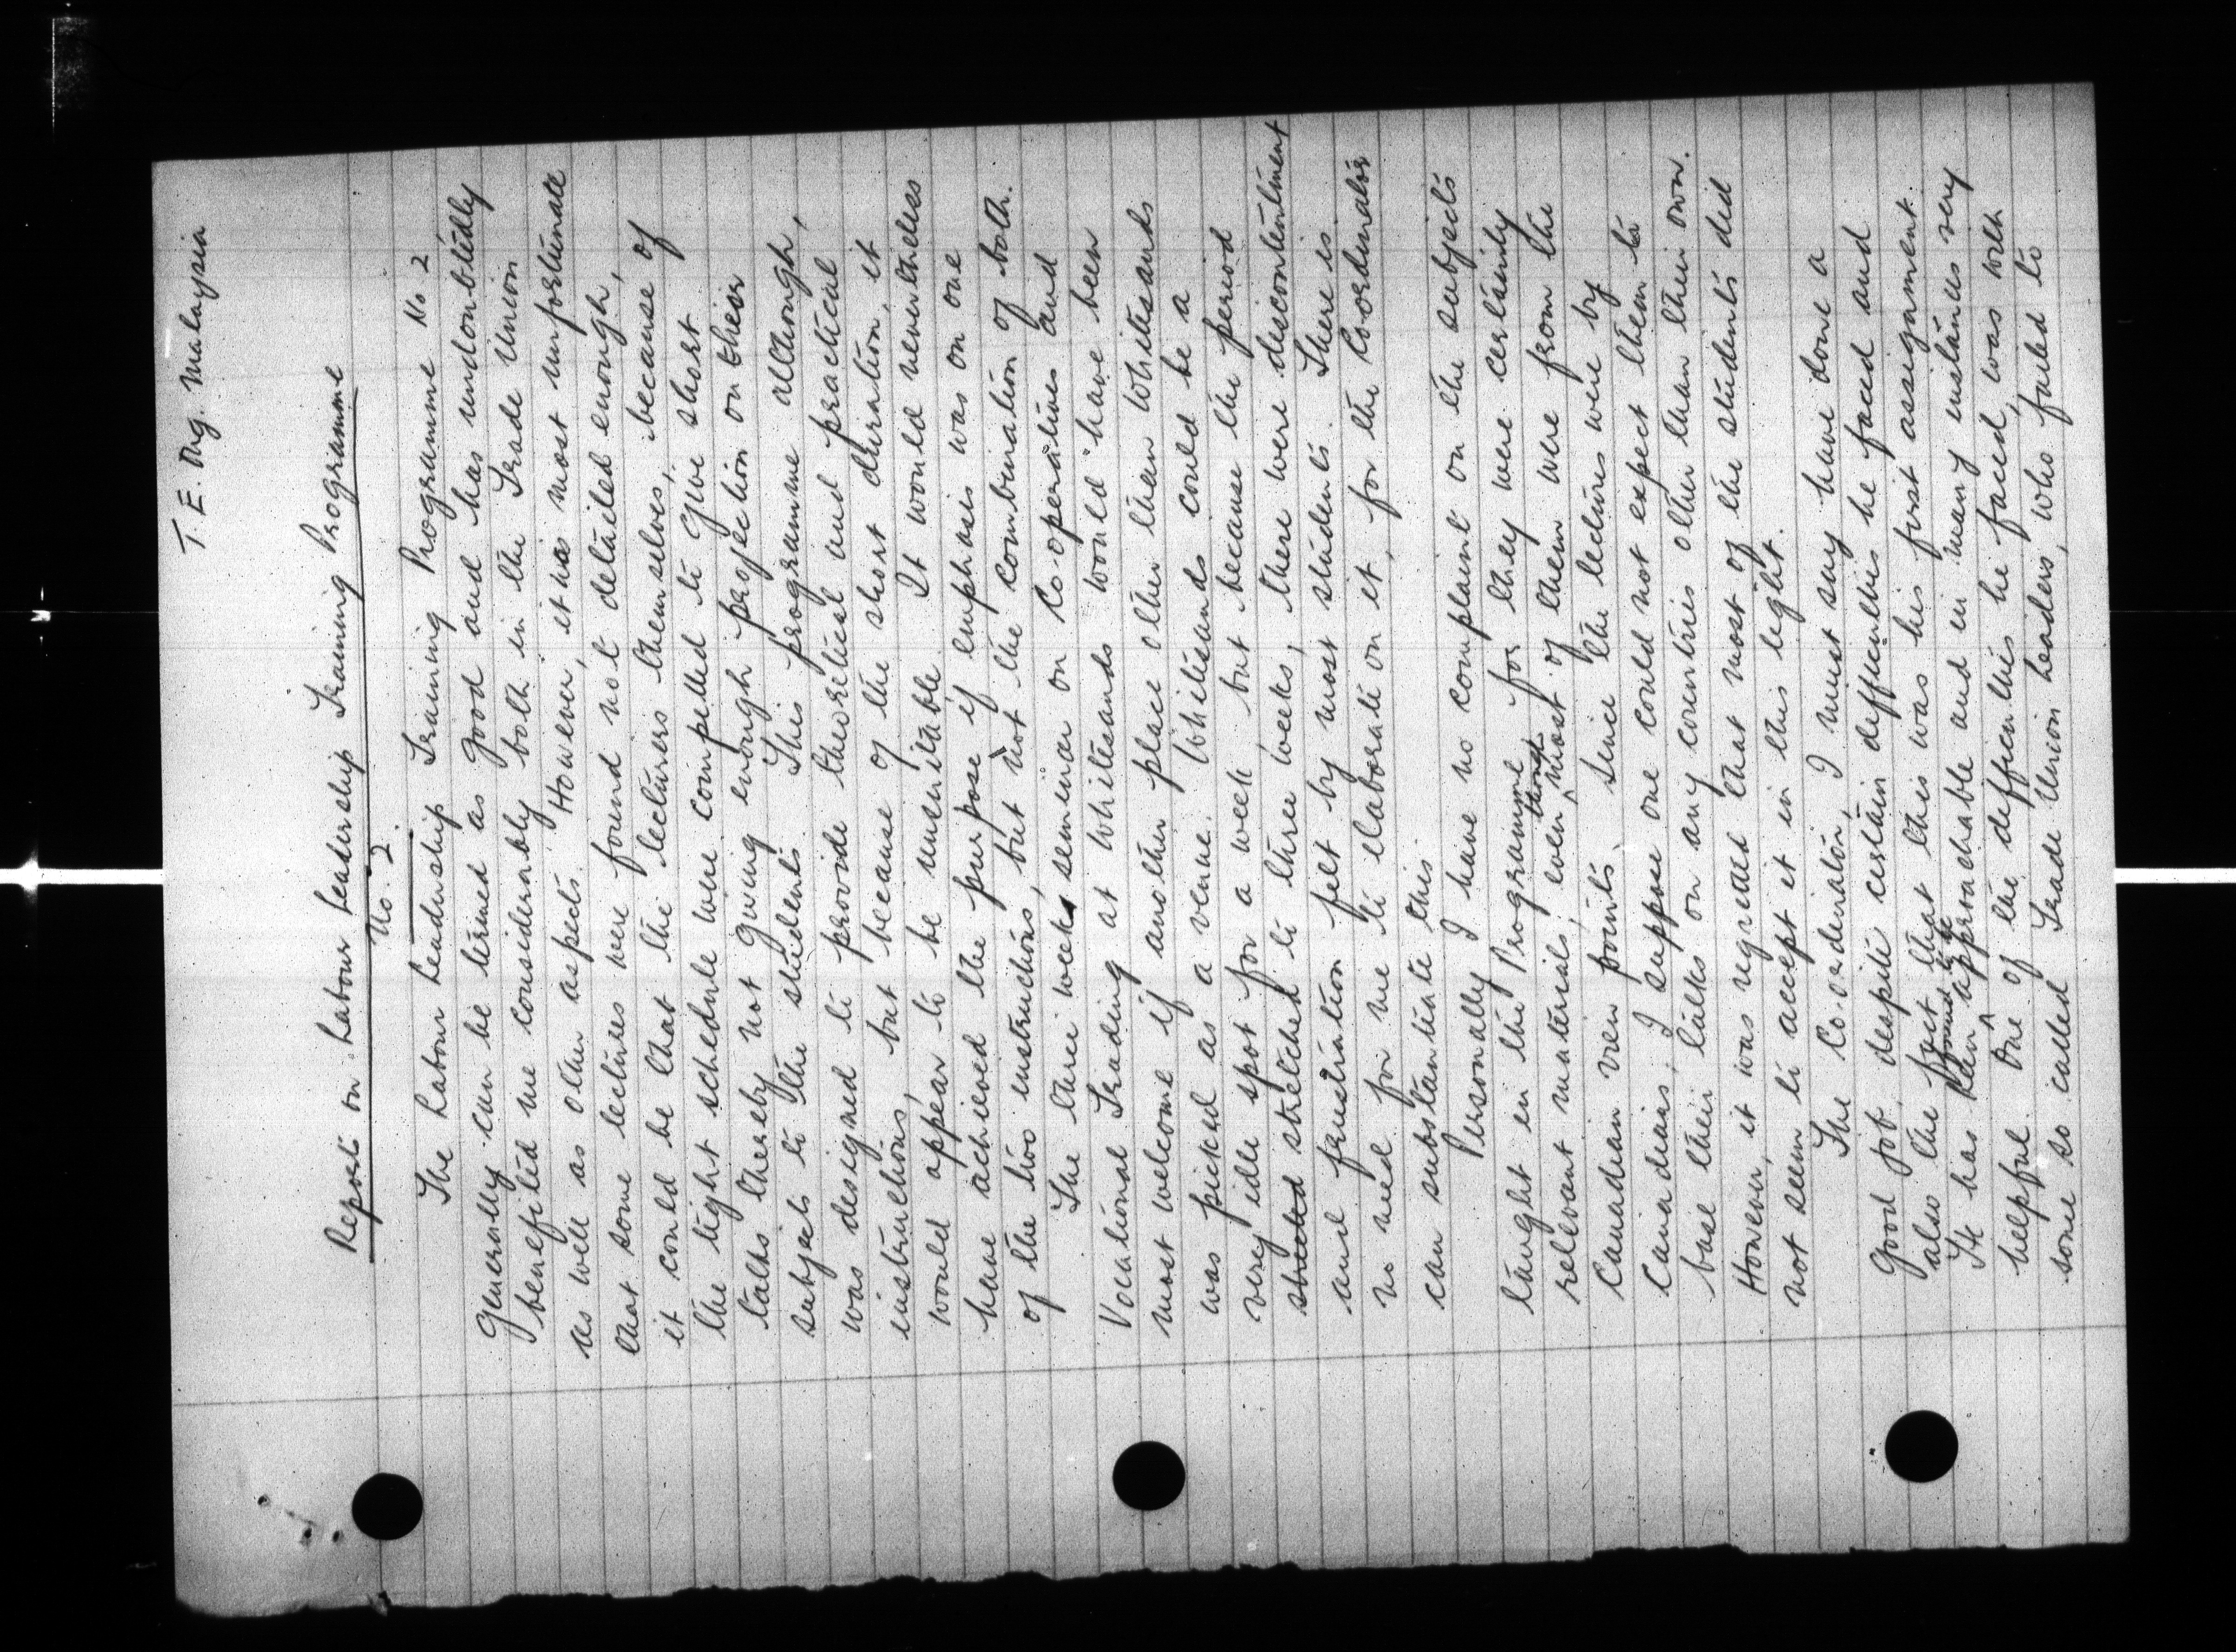 T. E. Ong. Malaysia
Report on Labour Leadership Training Programme
No. 2.
The Labour Leadership Training Programme No. 2
generally can be termed as good and has undoubtedly
benefited me considerably both in the Trade Union
as well as other aspects. However, it was most unfortunate
that some lectures were found not detailed enough,
it could be that the lecturers themselves, because of
the tight schedule were compelled to give short
talks thereby not giving enough projection on their
subjects to the students. This programme although,
was designed to provide theoritical and practical
instructions, but because of the short duration, it
would appear to be unsuitable. It would nevertheless
have achieved the purpose if emphasis was on one
of the two instructions, but not the combination of both.
The three weeks seminar on Co-operatives and
Vocational Trading at Whitesands would have been
most welcome if another place other than Whitesands
was picked as a venue. Whitesands could be a
very idle spot for a week but because the period
stretced stretched to three weeks, there were discontentment
and frustration felt by most students. There is
no need for me to elaborate on it, for the Coordinator
can substantiate this.
Personally I have no complaint on the subjects
taught in the Programme for they were certainly
relevant materials, even though most of them were from the
Canadian view points. Since the lectures were by
Canadians, I suppose one could not expect them to
base their talks on any countries other than their own.
However, it was regretted that most of the students did
not seem to accept it in this light.
The Co.ordinator, I must say have done a
good job, despite certain difficulties he faced and
also the fact that this was his first assignment.
He has been found to be approachable and in many instances very
helpful. One of the difficulties he faced, was with
some so called Trade Union Leaders, who failed to